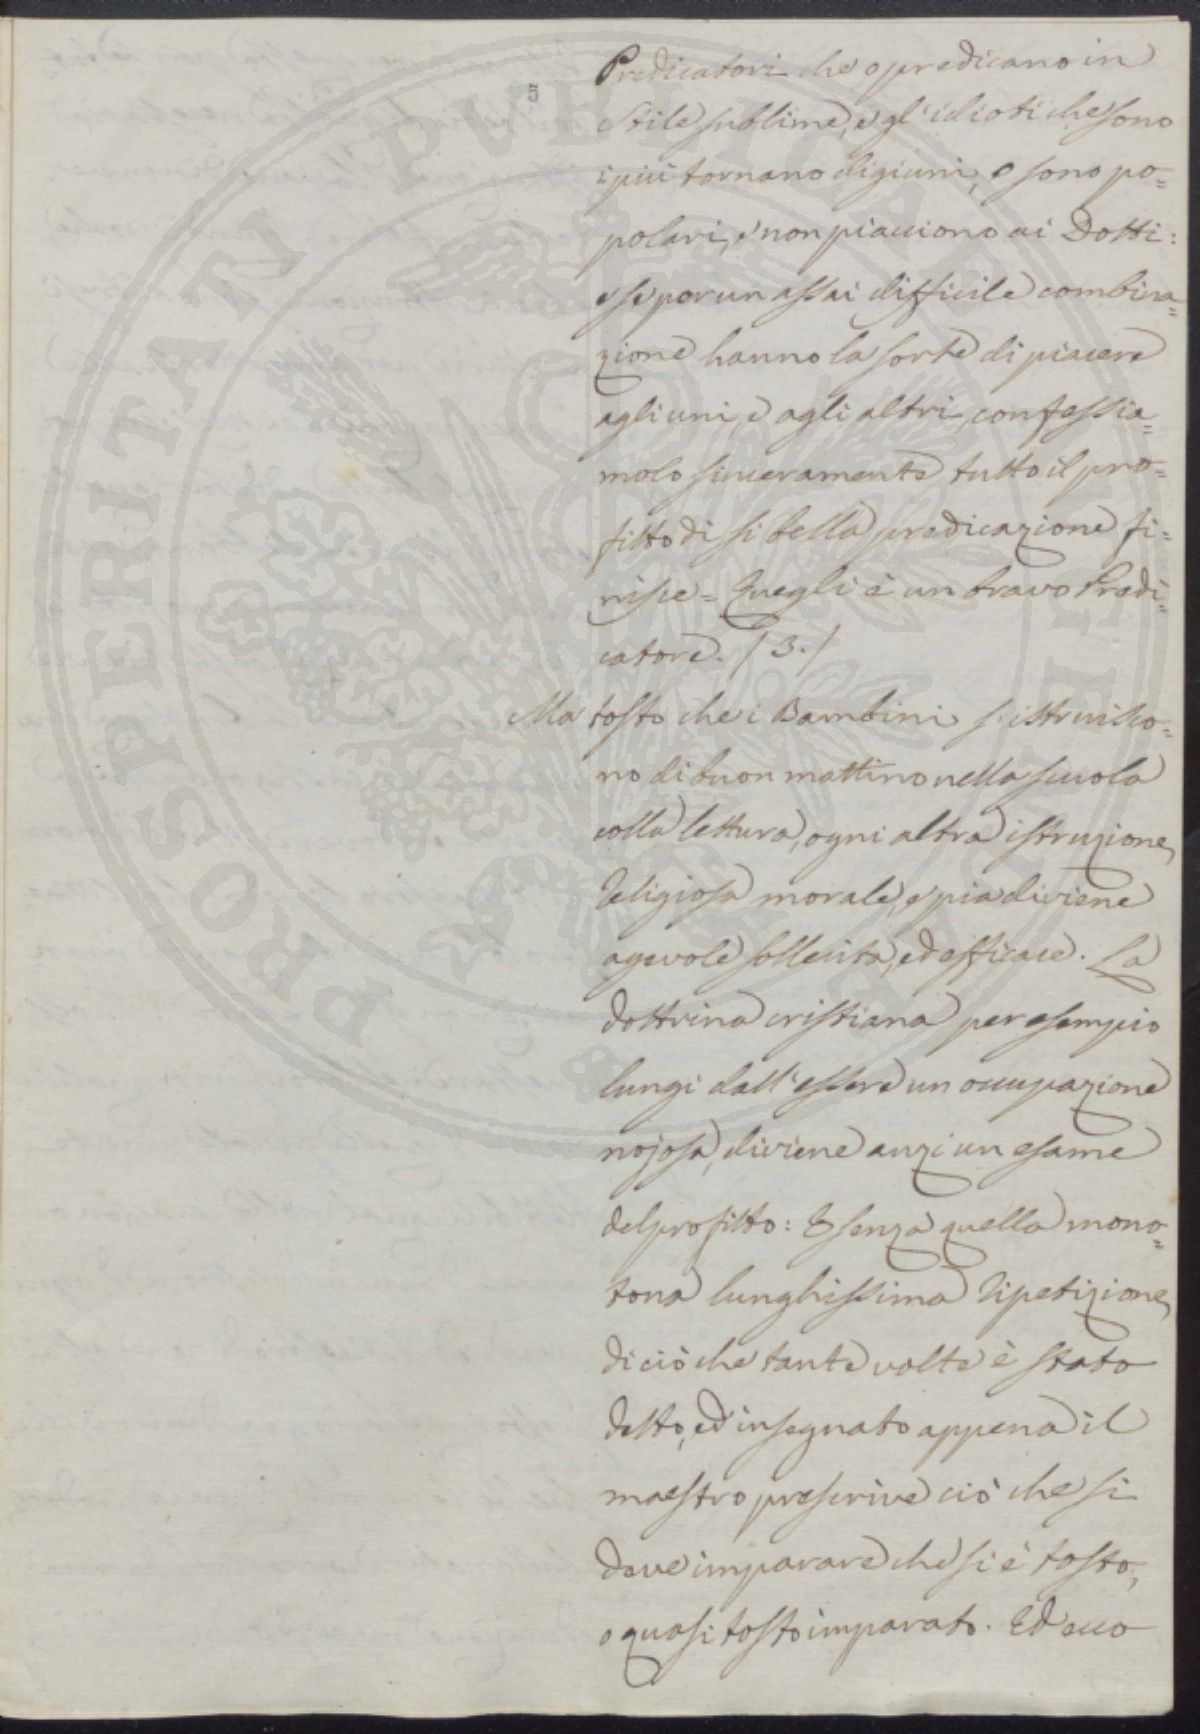 5
Predicatori che o predicano in
stile sublime, e gl'idioti che sono
i più tornano digiuni, o sono po=
polari, e non piacciono ai Dotti:
e se por un assai difficile combina=
zione hanno la sorte di piacere
agli uni, e agli altri, confessia=
molo sinceramente tutto il pro=
fitto di si bella predicazione fi=
nisce = Quegli è un bravo Predi=
catore. /3./
Ma tosto che i Bambini s'istruisco=
no di buon mattino nella scuola
colla lettura, ogni altra istruzione
Religiosa morale, e pia diviene
agevole sollecita, ed efficace. La
dottrina cristiana per esempio
lungi dall'essere un occupazione
nojosa, diviene anzi un esame
del profitto: E senza quella mono=
tona lunghissima ripetizione
di ciò che tante volte è stato
detto, ed insegnato appena il
maestro prescrive ciò che si
deve imparare che si è tosto,
o quasi tosto imparato. Ed ecco
PROSPERITATI PUBLICAE